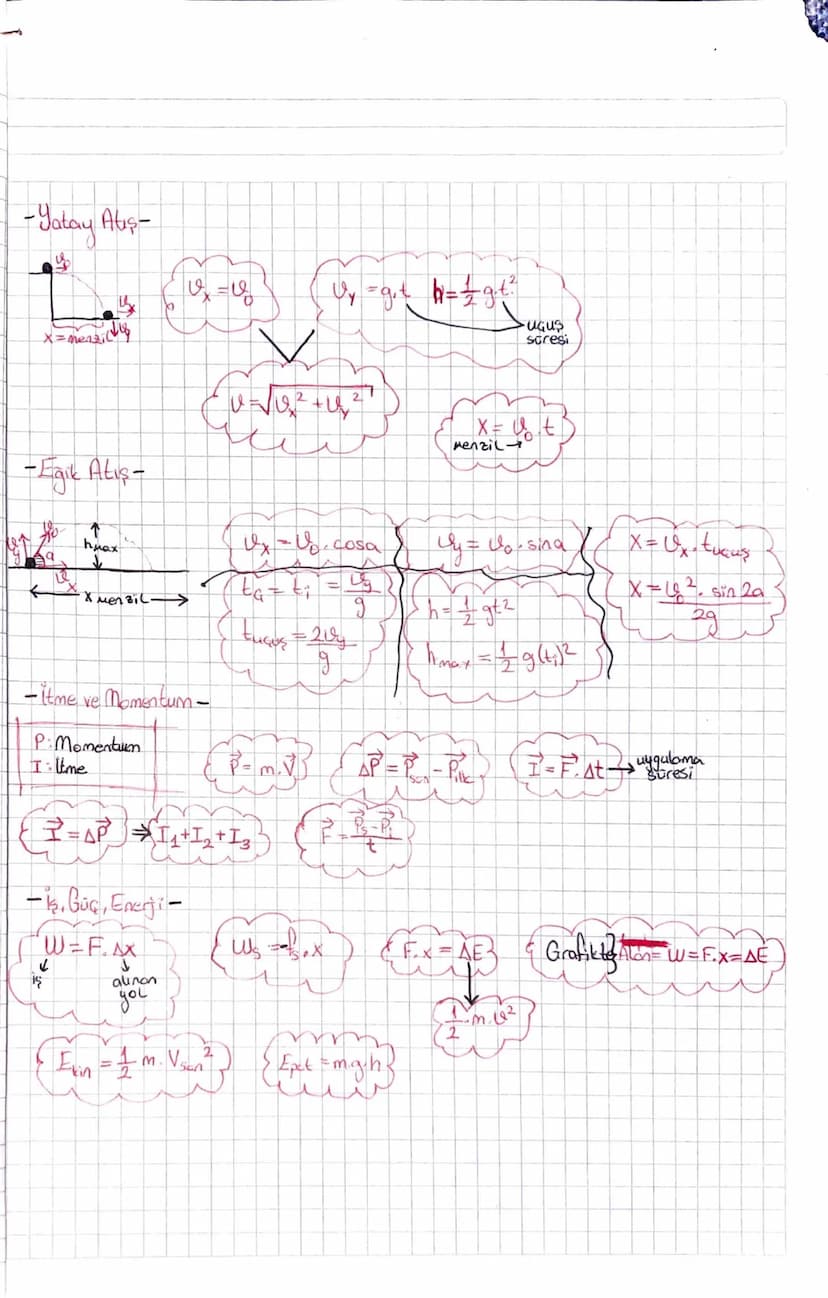 -Yatay Atış-
ϑ₀
ϑₓ
ϑy
X=menzil
ϑₓ = ϑ₀
ϑy = g.t h = 1/2 g.t²
uçuş
süresi
ϑ = √(ϑₓ² + ϑy²)
X = ϑ₀.t
menzil →
-Eğik Atış-
ϑy ϑ₀
a
ϑₓ
hmax
X menzil
ϑₓ = ϑ₀.cosa
ϑy = ϑ₀.sina
X = ϑₓ.tuçuş
X = ϑ₀².sin2a / 2g
tç = ti = ϑy / g
tuçuş = 2ϑy / g
h = 1/2 gt²
hmax = 1/2 g(ti)²
-İtme ve Momentum-
P: Momentum
I: İtme
P⃗ = m.V⃗
ΔP⃗ = P⃗son - P⃗ilk
I⃗ = F⃗.Δt → uygulama
süresi
I⃗ = ΔP⃗ ⇒ I₁+I₂+I₃
F⃗ = P⃗s - P⃗i / t
-İş, Güç, Enerji-
W = F.Δx
iş
alınan
yol
Ws = -fs.x
F.x = ΔE
1/2 .m.ϑ²
Grafikte} Alan = W = F.x = ΔE
Ekin = 1/2 m.Vson²
Epot = m.g.h